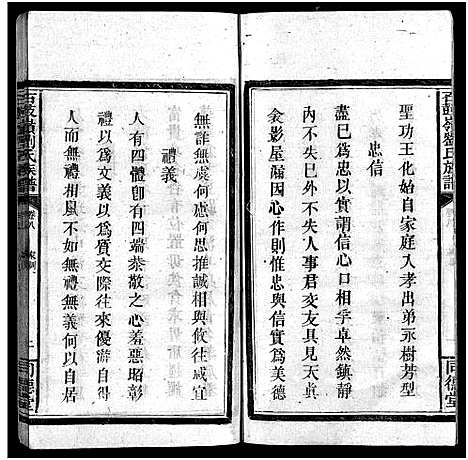 石鼓嶺劉氏族譜
同德堂
聖功王化始自家庭入孝出弟永樹芳型
忠信
盡已爲忠以實謂信心口相孚卓然鎮靜
內不失已外不失人事君交友具見天眞
衾影屋漏因心作則惟忠與信實爲美德
無詐無虞何慮何思推誠相與攸往咸宜
禮義
人有四體卽有四端恭敬之心羞惡昭彰
禮以爲文義以爲質交際往來優游自得
人而無禮相鼠不如無禮無義何以自居
石鼓嶺劉氏族譜
卷八
家
二
同德堂